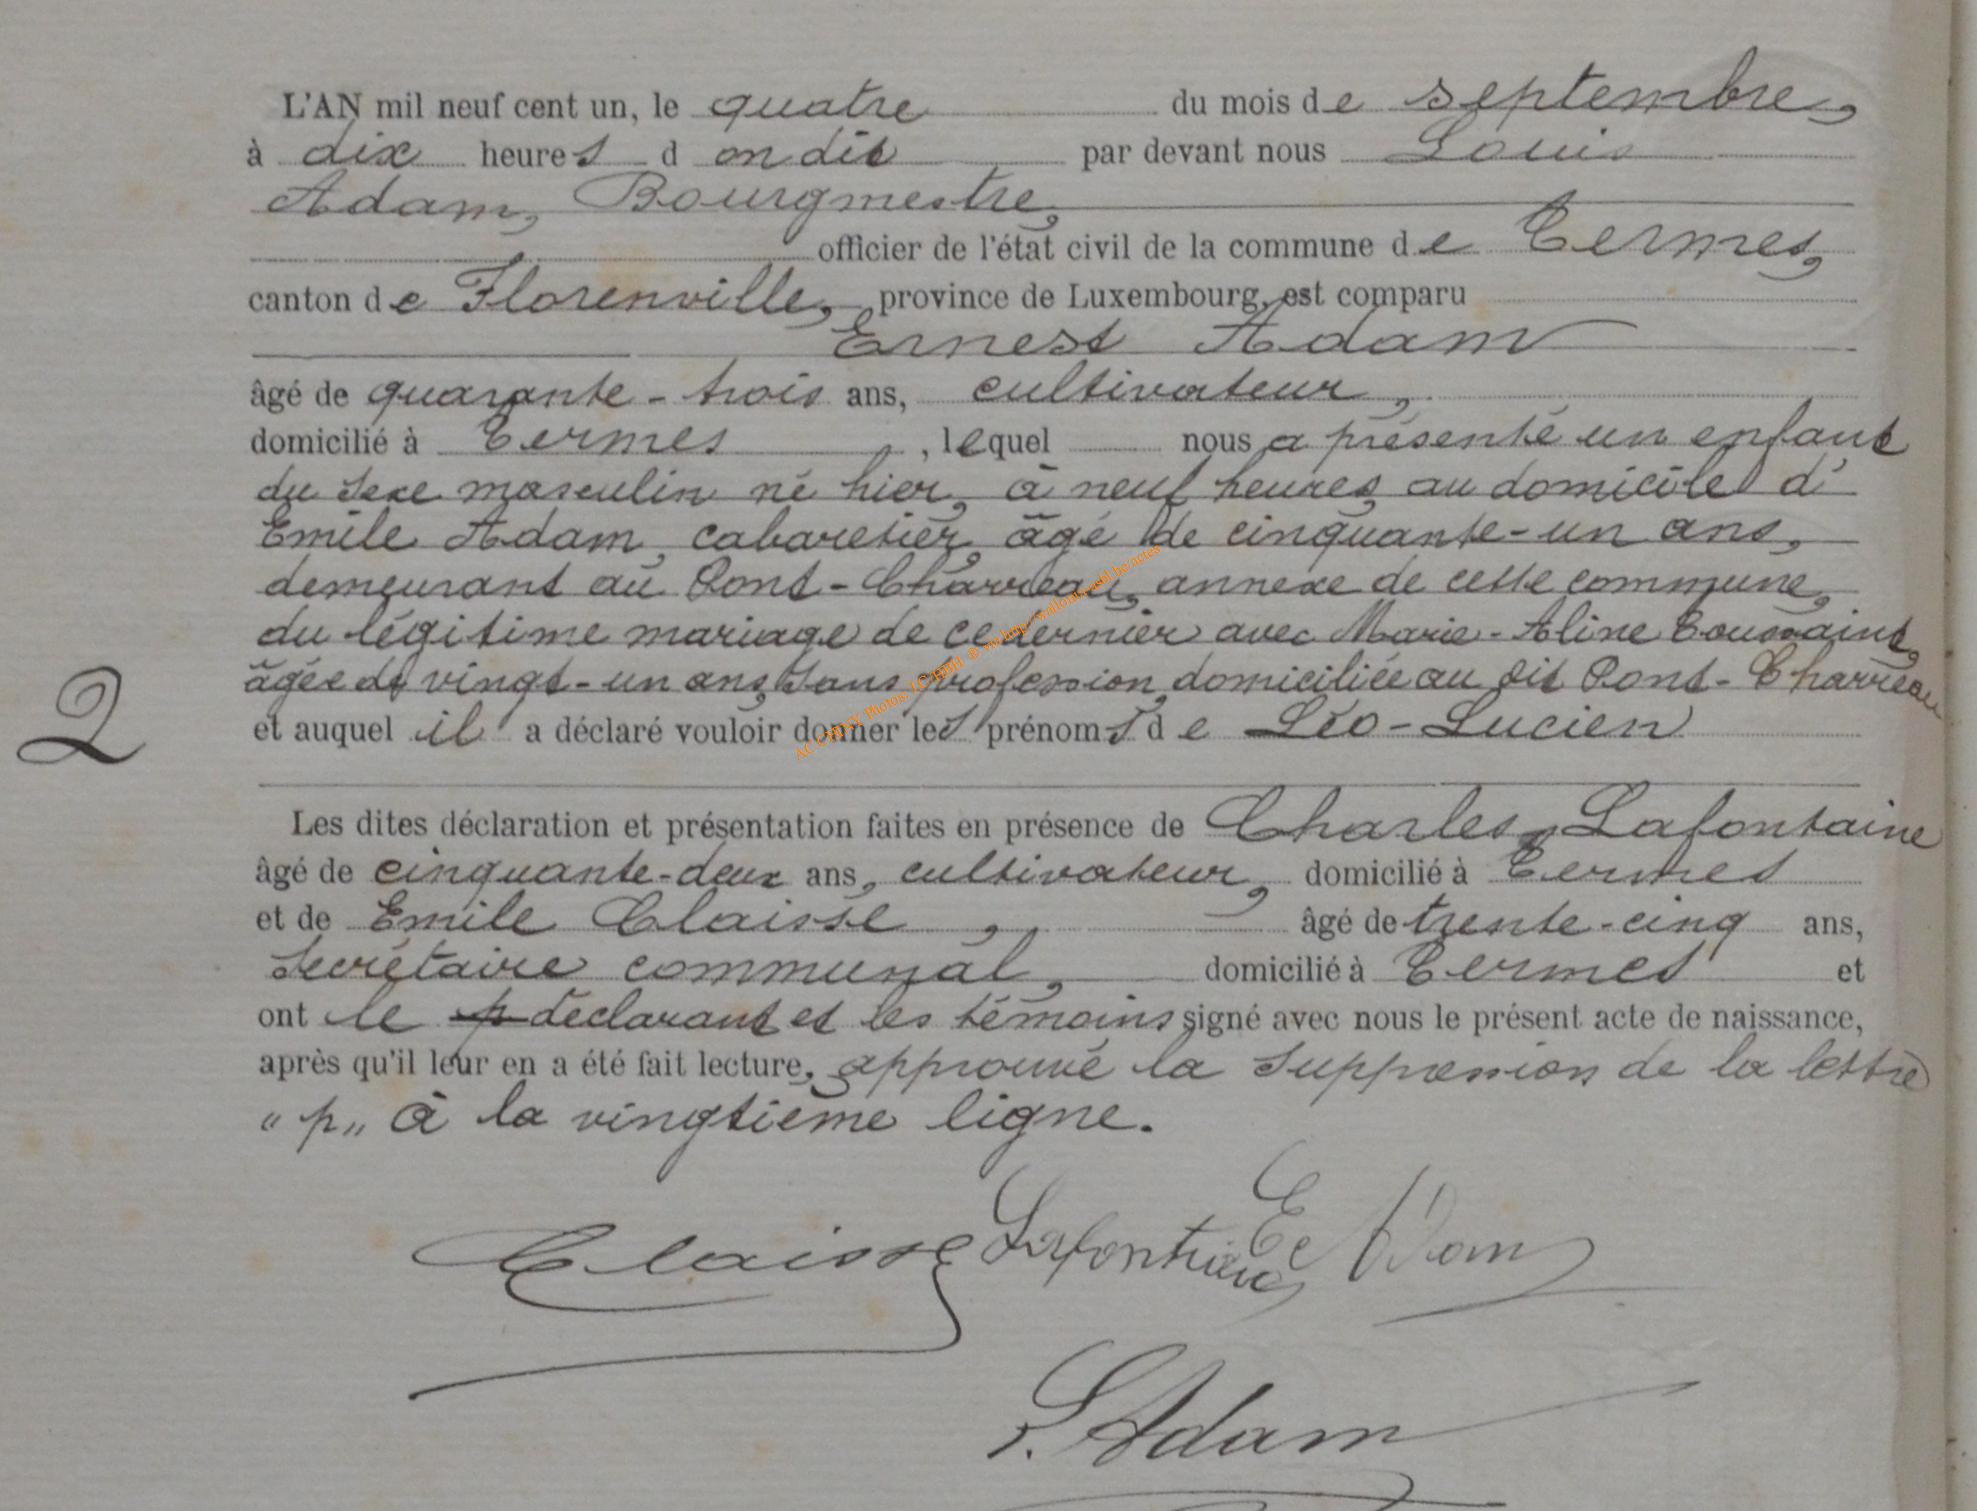 L'AN mil neuf cent un, le quatre du mois de septembre,
à dix heures d on dit par devant nous Louis
Adam, Bourgmestre,
officier de l'état civil de la commune de Termes,
canton de Florenville, province de Luxembourg, est comparu
Ernest Adam
âgé de quarante-trois ans, cultivateur,
domicilié à Termes, lequel nous a présenté un enfant
du sexe masculin né hier, à neuf heures, au domicile d'
Emile Adam, cabaretier, âgé de cinquante-un ans,
demeurant au Pont-Charreau, annexe de cette commune,
du légitime mariage de ce dernier avec Marie-Aline Toussaint,
âgée de vingt-un ans, sans profession, domiciliée au dit Pont-Charreau
2
et auquel il a déclaré vouloir donner les prénoms de Léo-Lucien
Les dites déclaration et présentation faites en présence de Charles Lafontaine
âgé de cinquante-deux ans, cultivateur, domicilié à Termes
et de Emile Claisse, âgé de trente-cinq ans,
Secrétaire communal, domicilié à Termes et
ont le p déclarant et les témoins signé avec nous le présent acte de naissance,
après qu'il leur en a été fait lecture, approuvé la suppression de la lettre
"p" à la vingtième ligne.
Claisse Lafontaine E Adam
L. Adam